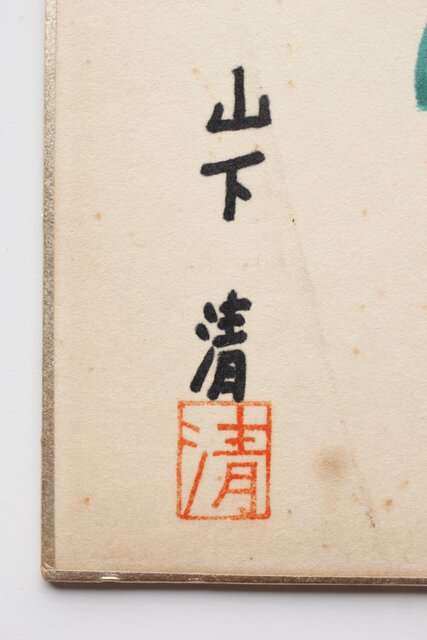 山下 清
清